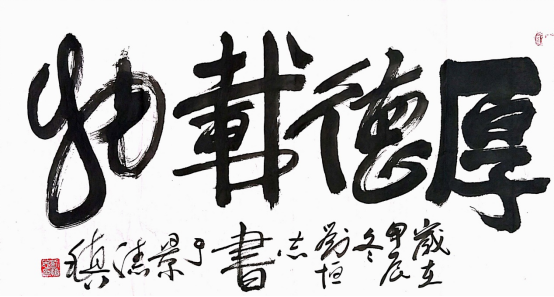 厚德載物
歲在甲辰冬劉恒志書于景德鎮